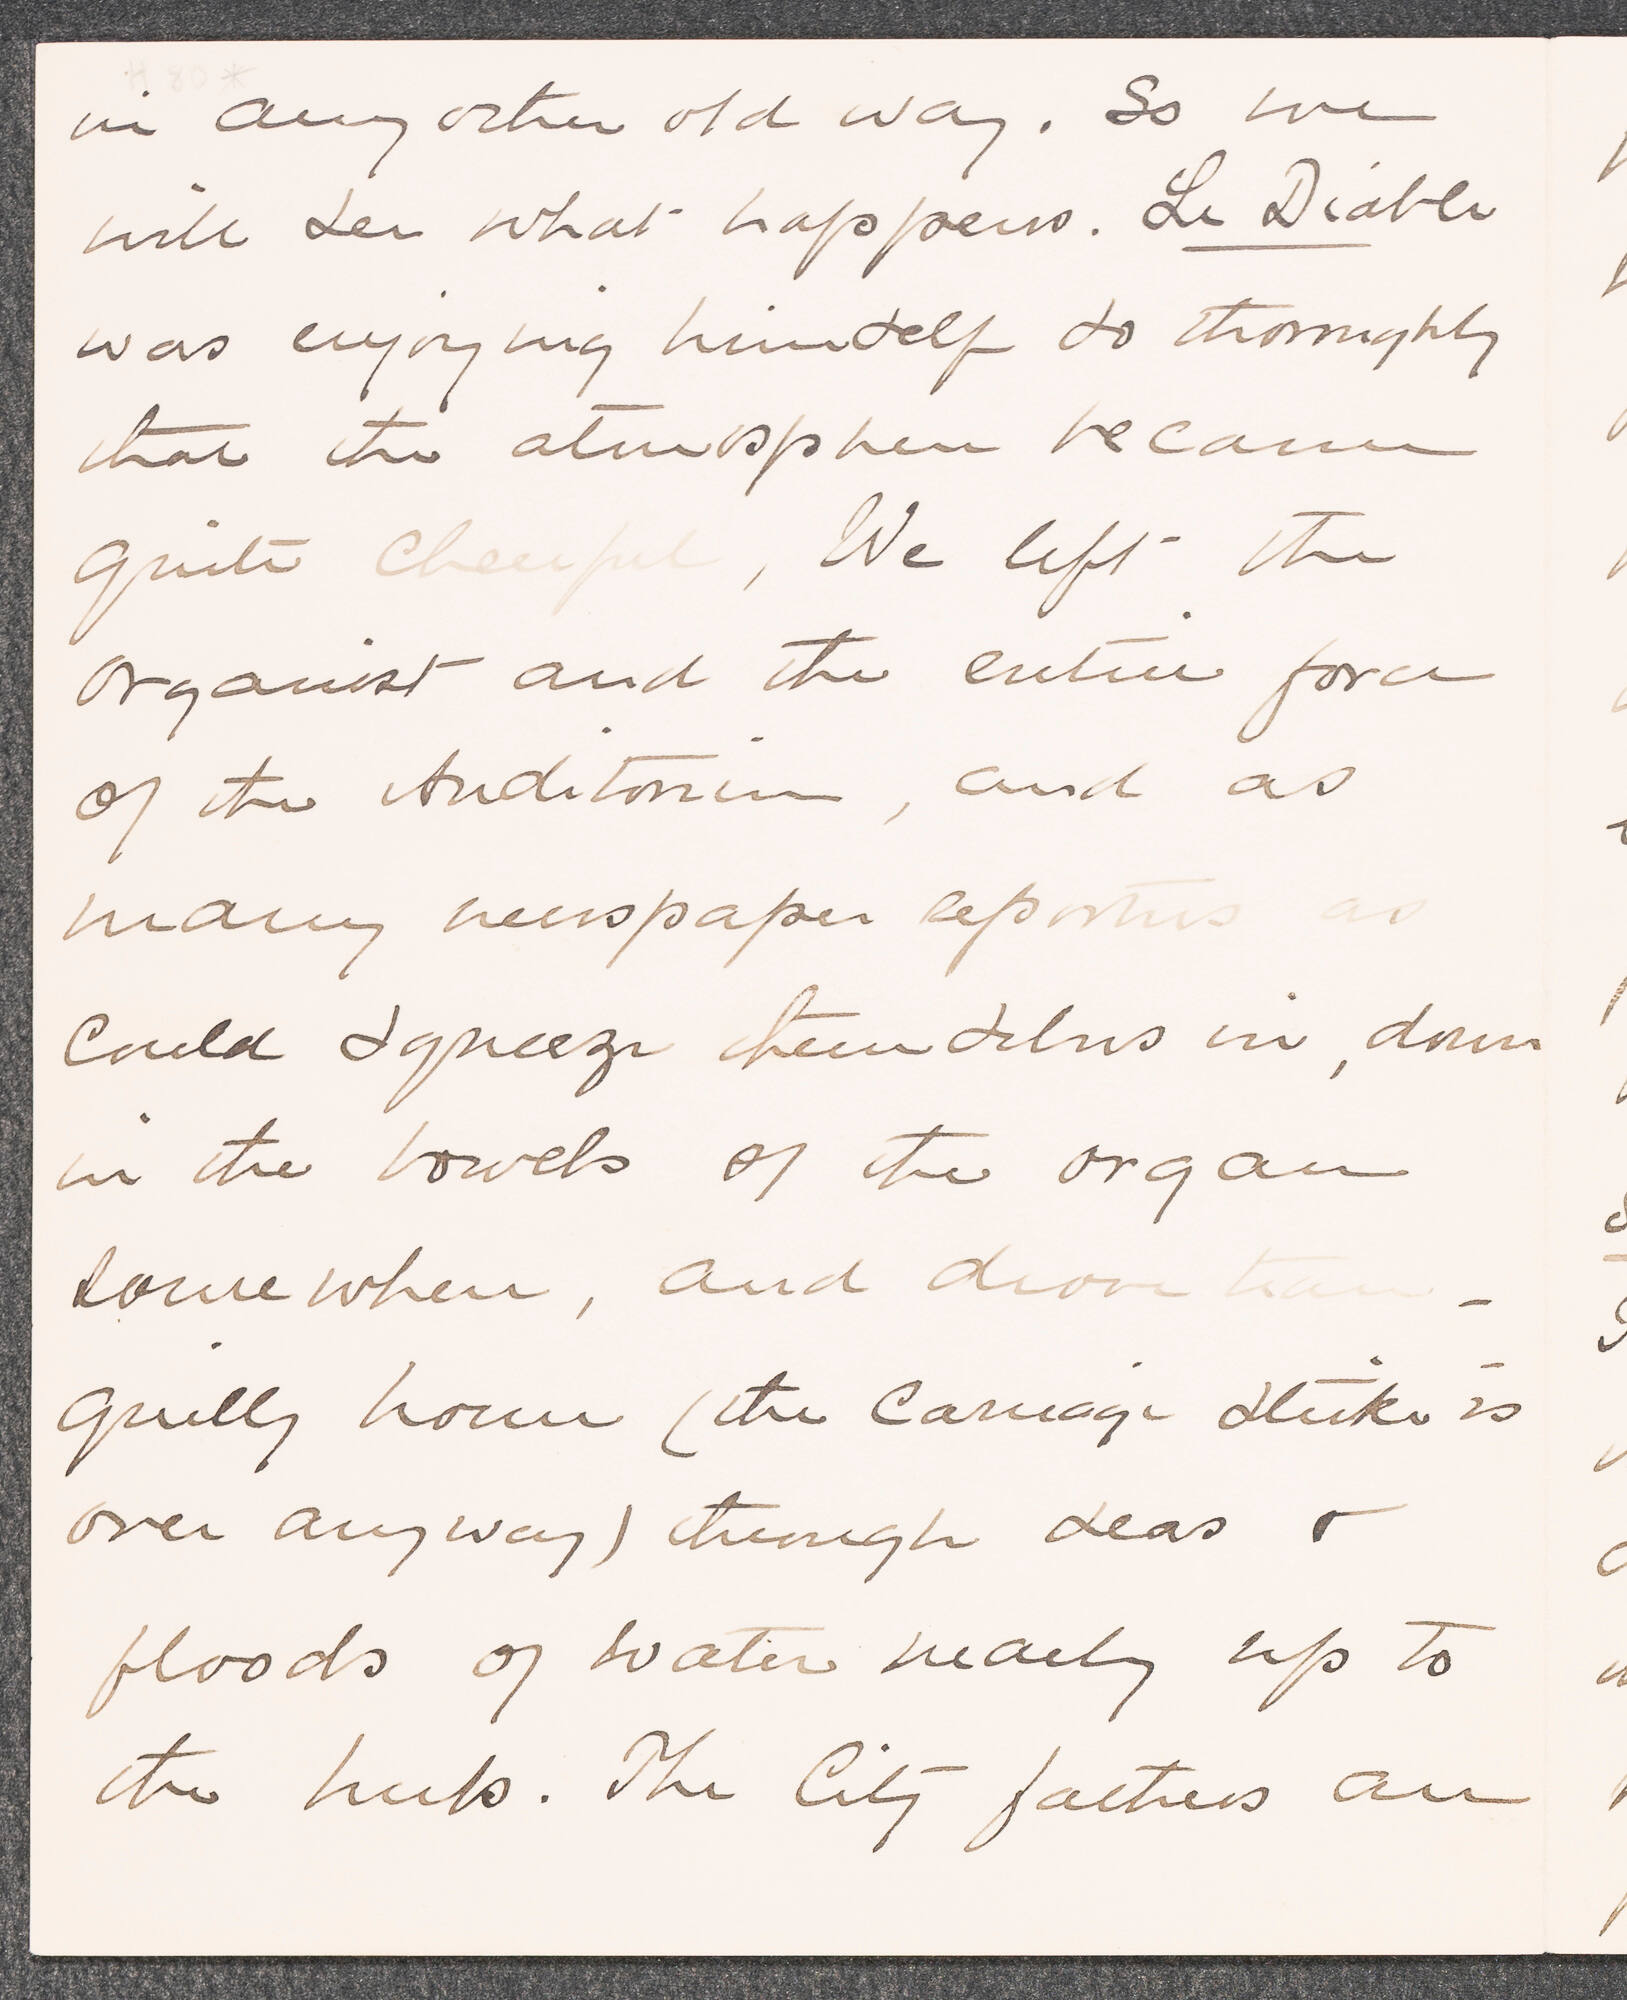 in any other old way. So we
will see what happens. Le Diable
was enjoying himself so thoroughly
that the atmosphere became
quite cheerful, We left the
organist and the entire force
of the Auditorium, and as
many newspaper reporters as
could squeeze themselves in, down
in the bowels of the organ
somewhere, and drove tran-
quilly home (the carriage strike is
over anyway) through seas &
floods of water nearly up to
the hubs. The City fathers are